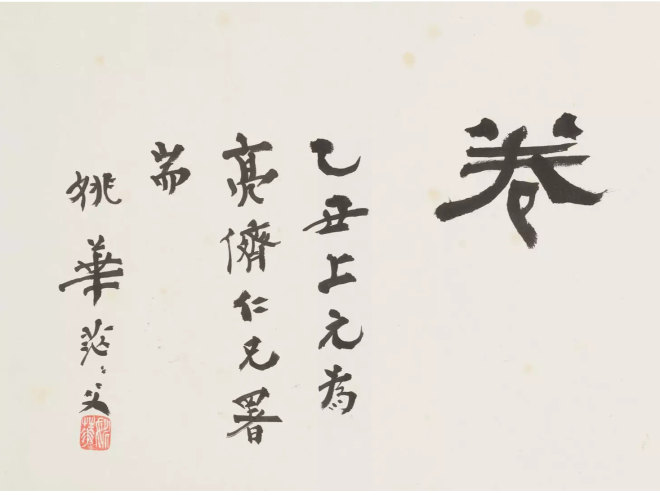 卷
乙丑上元為
亮儕仁兄署
耑
姚華茫茫父